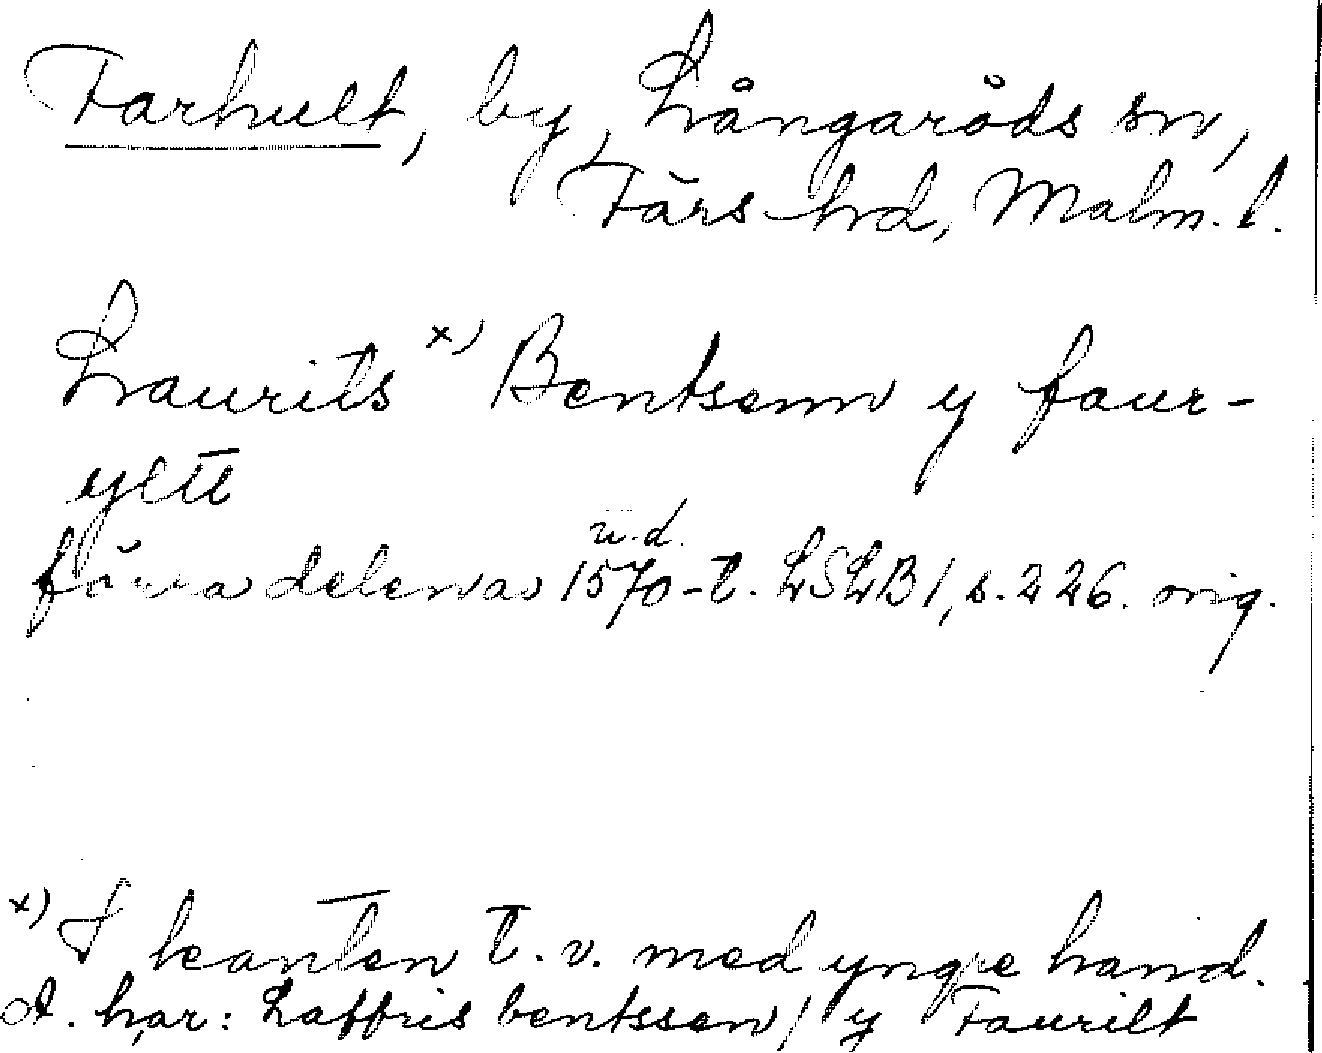 Farhult, by, Långaröds sn,
Färs hd, Malm. l.
Laurits x) Bentsenn y faur-
yltt
u.d.
förra delen av 1570-t. LSLB 1, s. 226. orig.
x) I kanten t.v. med yngre hand.
st. här: Laffris bentssen / y Faurilt